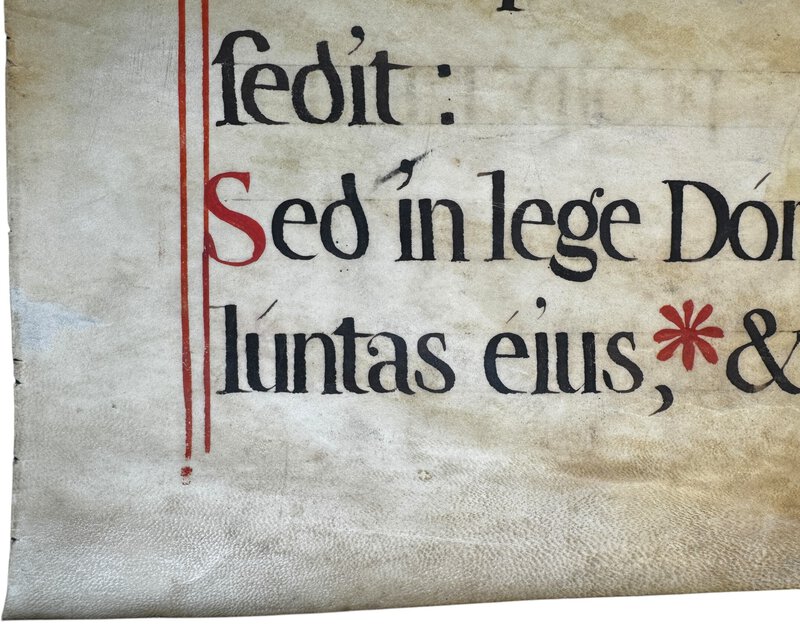 ſedit :
Sed in lege Dó
lúntas éius,* &